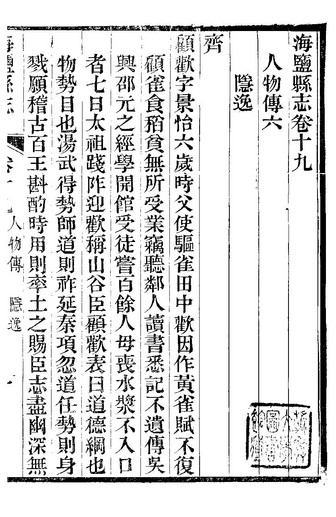 海鹽縣志卷十九
人物傳六
隱逸
齊
顧歡字景怡六歲時父使驅雀田中歡因作黃雀賦不復
顧雀食稻貧無所受業竊聽鄰人讀書悉記不遺傳吳
興邵元之經學開館受徒嘗百餘人母喪水漿不入口
者七日太祖踐阼迎歡稱山谷臣顧歡表曰道德綱也
物勢目也湯武得勢師道則祚延秦項忽道任勢則身
戮願稽古百王斟酌時用則率土之賜臣志盡幽深無
海鹽縣志
人物傳 隱逸